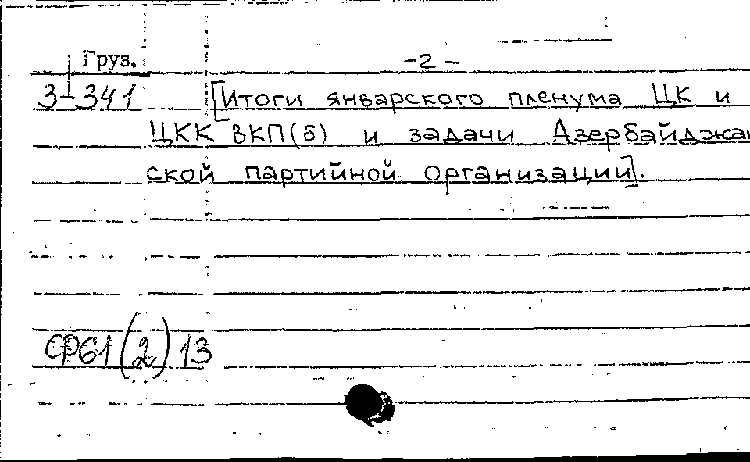 Груз. -2-
3-341 [Итоги январского пленума ЦК и
ЦКК ВКП(б) и задачи Азербайджан
ской партийной организации].
СР61(2)13